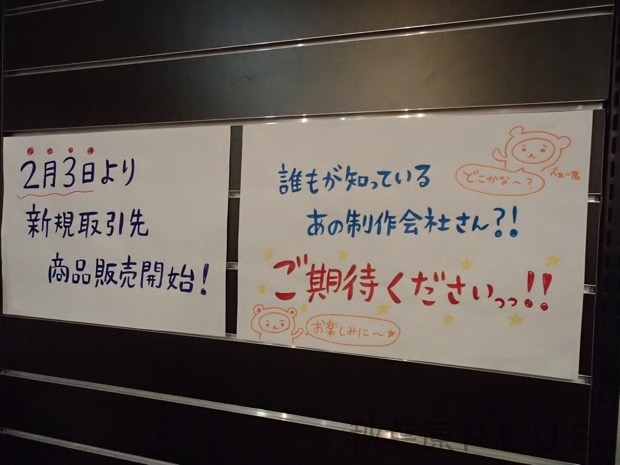 2月3日より
新規取引先
商品販売開始!
誰もが知っている
あの制作会社さん?!
ご期待くださいっっ!!
どこかな〜?
お楽しみに〜☆
秋葉原PLUS